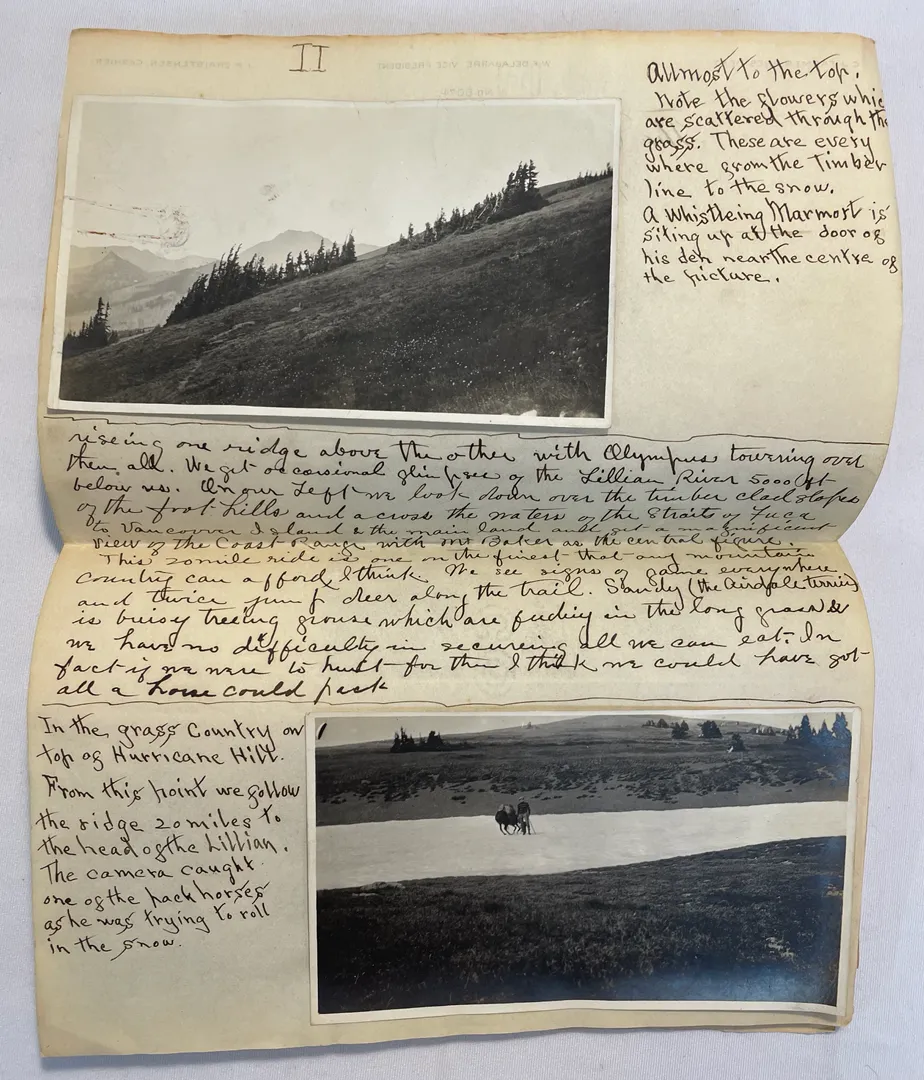 II
Allmost to the top.
Note the flowers whic
are scattered through the
grass. These are every
where from the Timber
line to the snow.
A Whistleing Marmort is
siting up at the door of
his den near the centre of
the picture.
riseing one ridge above the other with Olympus towering over
them all. We get occasional glimpses of the Lillian River 5000 ft
below us. On our Left we look down over the timber clad slopes
of the foot hills and across the waters of the Straits of Fuca
to Vancouver Island & the main land and get a magnificent
view of the Coast Range with Mt Baker as the central figure.
This 20 mile ride is one on the finest that any mountain
country can afford I think. We see signs of game everywhere
and twice jump deer along the trail. Sandy (the Airdale terrier)
is buisy treeing grouse which are fudiy in the long grass &
we have no difficulty in secureing all we can eat. In
fact if we were to hunt for them I think we could have got
all a horse could pack
In the grass Country on
top of Hurricane Hill.
From this point we follow
the ridge 20 miles to
the head of the Lillian.
The camera caught
one of the pack horses
as he was trying to roll
in the snow.